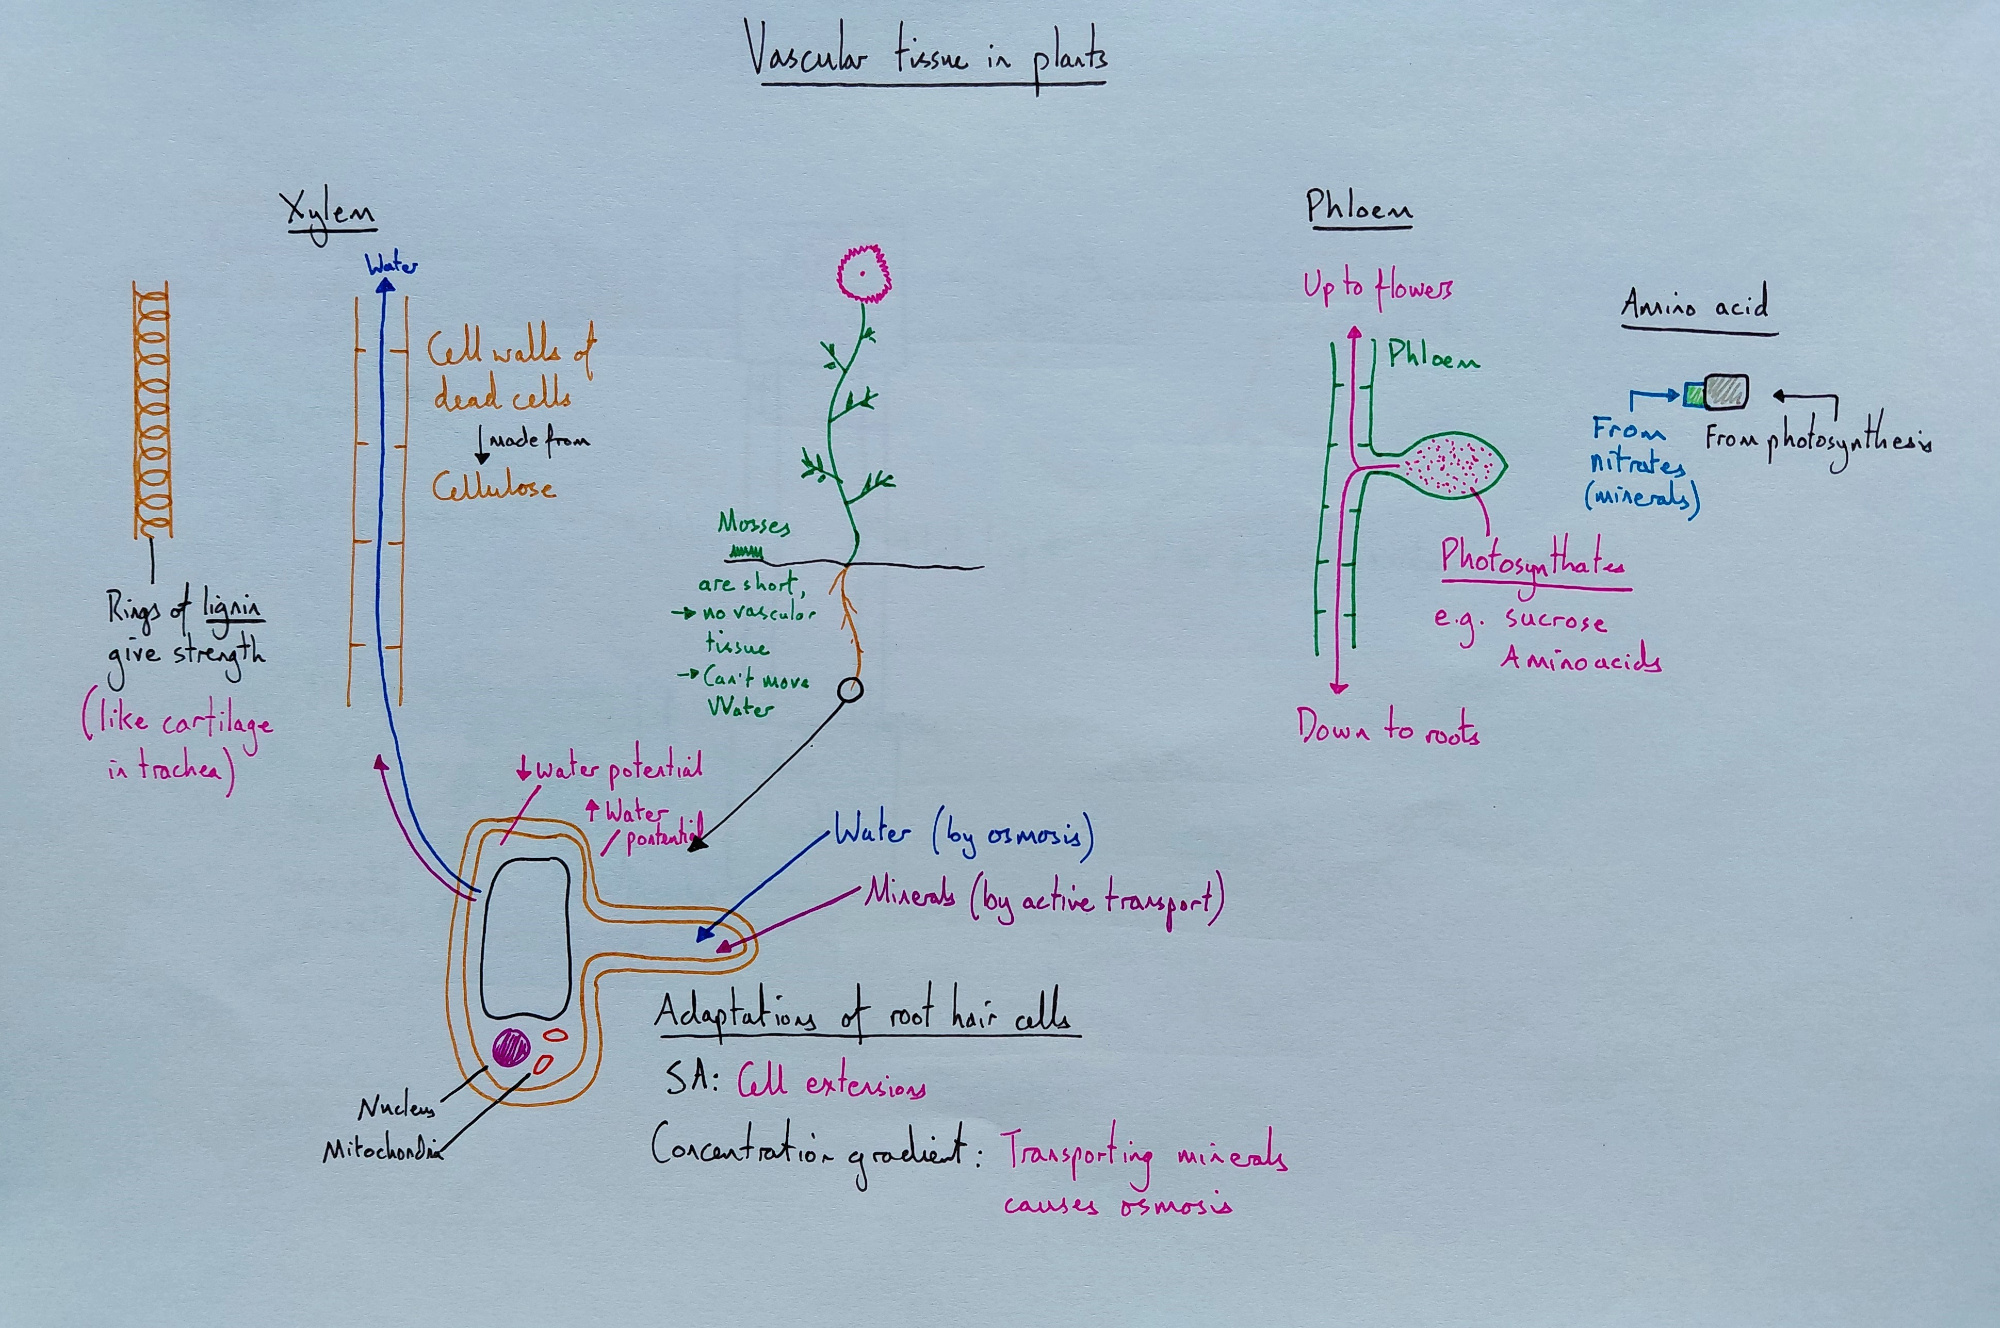 Vascular tissue in plants
Xylem
Water
Cell walls of
dead cells
↓ made from
Cellulose
Rings of lignin
give strength
(like cartilage
in trachea)
Mosses
are short,
→ no vascular
tissue
→ Can't move
Water
↓ water potential
↑ Water
potential
Water (by osmosis)
Minerals (by active transport)
Nucleus
Mitochondria
Adaptations of root hair cells
SA: Cell extensions
Concentration gradient: Transporting minerals
causes osmosis
Phloem
Up to flowers
Phloem
Photosynthates
e.g. sucrose
Amino acids
Down to roots
Amino acid
From
nitrates
(minerals)
From photosynthesis